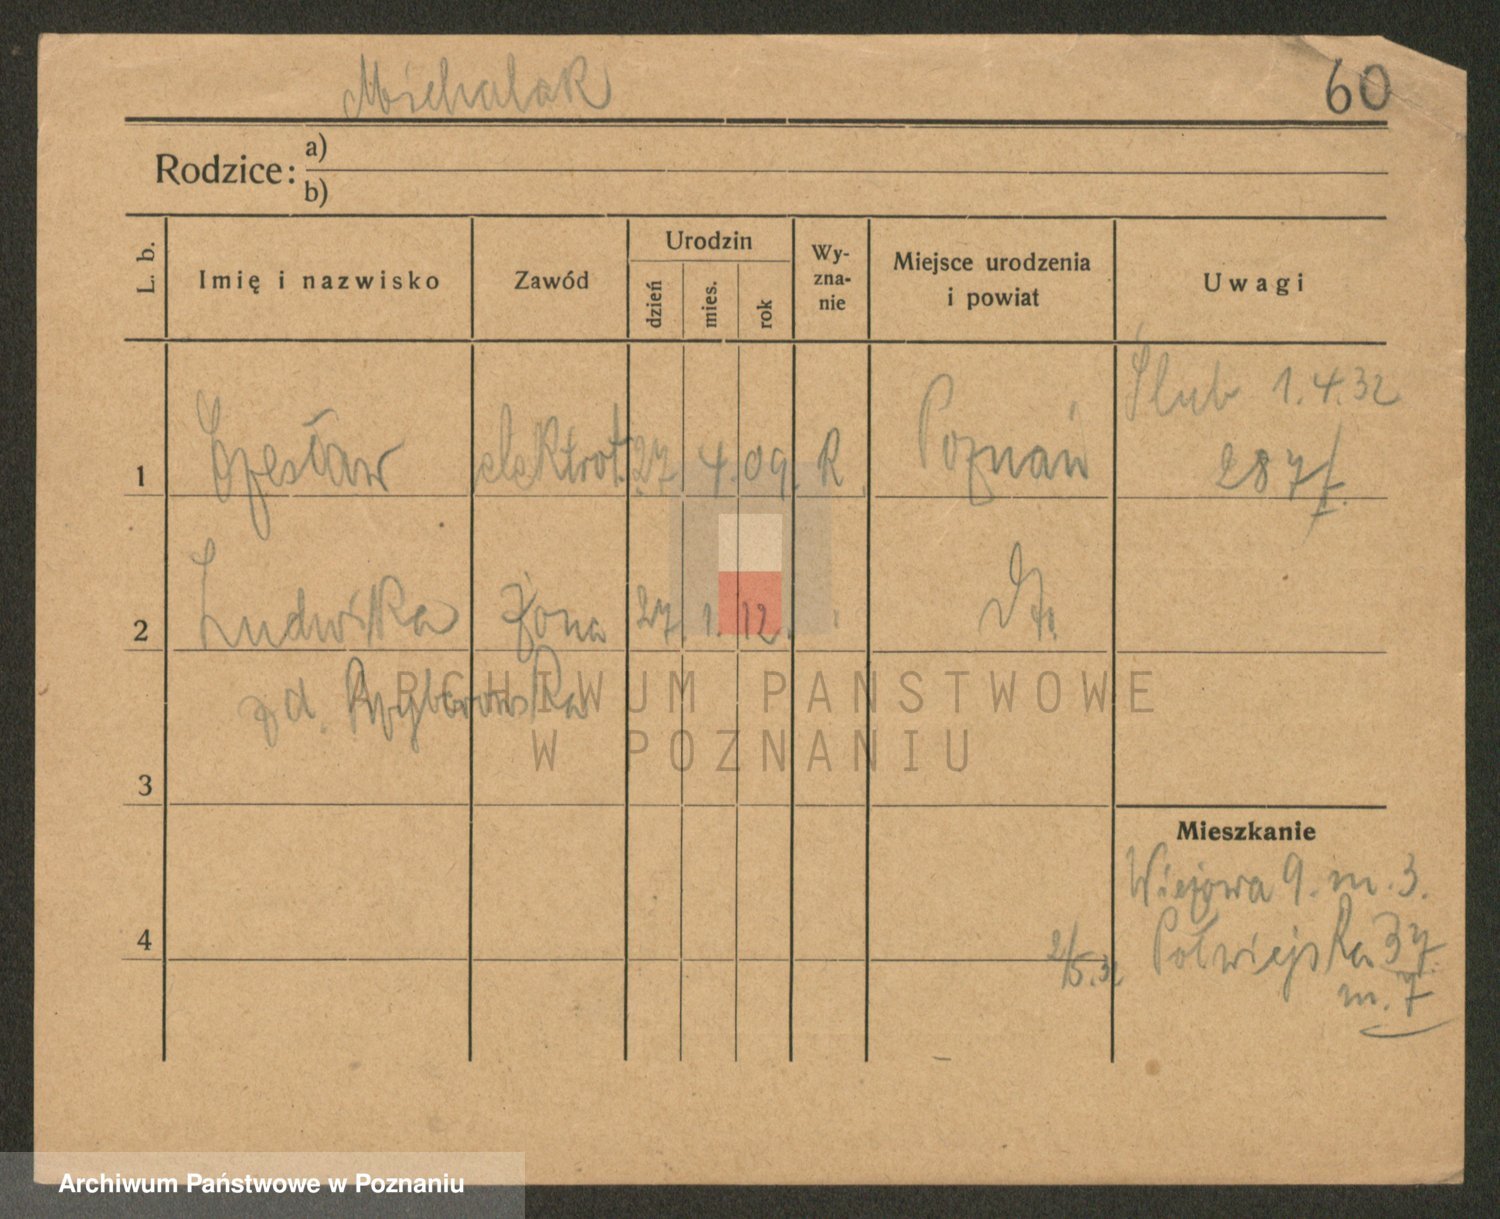 Michalak 60
Rodzice: a)
b)
L. b. Imię i nazwisko Zawód Urodzin dzień mies. rok Wy-zna-nie Miejsce urodzenia i powiat Uwagi
Ślub 1.4.32
1 Czesław elektrot. 27. 4. 09. R. Poznań 287/
2 Ludwika żona 27. 1. 12. Dto
zd.
ARCHIWUM PAŃSTWOWE
W POZNANIU
3
Mieszkanie
Wiejowa 9. m. 3.
4 2/5.32 Półwiejska 37.
m. 7
Archiwum Państwowe w Poznaniu